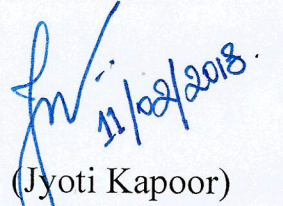 11/02/2018.
(Jyoti Kapoor)